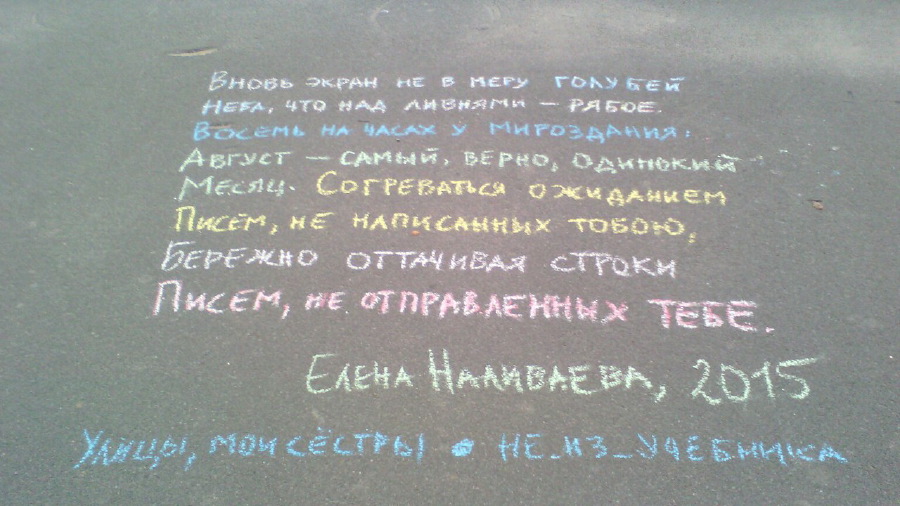 Вновь экран не в меру голубей
Неба, что над ливнями — рябое.
Восемь на часах у мироздания:
Август — самый, верно, одинокий
Месяц. Согреваться ожиданием
Писем, не написанных тобою,
Бережно оттачивая строки
Писем, не отправленных тебе.
Елена Наливаева, 2015
Улицы, мои сёстры • не_из_учебника